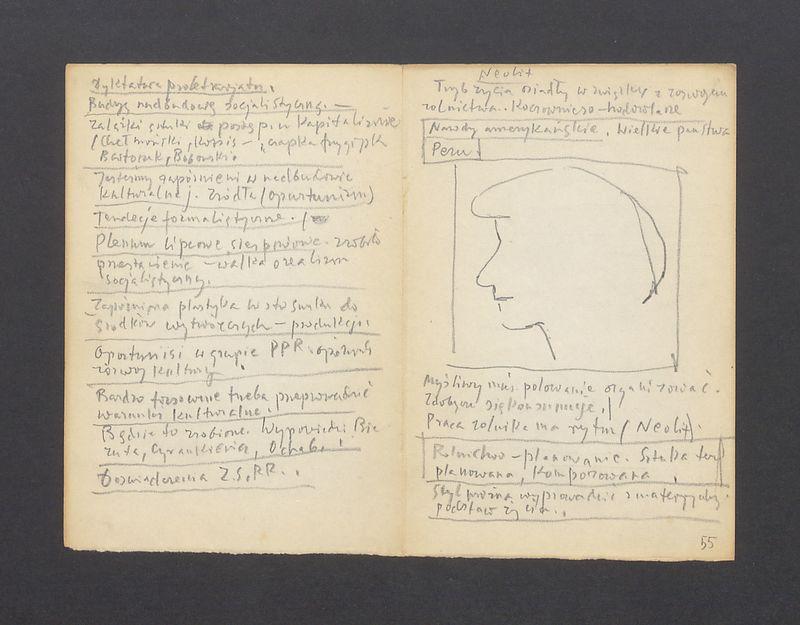 Dyktatura proletariatu.
Budują nadbudowę socjalistyczną. —
zalążki sztuki postęp. w kapitalizmie
(Chełmoński, — czapka frygijska
Bartoszek,
Jesteśmy zapóźnieni w nadbudowie
kulturalnej. Źródła (oportunizm)
Tendencje formalistyczne. (
Plenum lipcowe, sierpniowe. zrobiło
— walka o realizm
socjalistyczny.
Zapóźniona plastyka w stosunku do
środków wytwórczych — produkcji.
Oportuniści w grupie PPR. opóźnili
rozwój kultury.
Bardzo forsownie trzeba przeprowadzić
warunki kulturalne.
Będzie to zrobione. Wypowiedzi Bie
ruta, Cyrankiewicza, Ochab. !
Doświadczenia Z.S.RR. .
Neolit
Tryb życia osiadły w związku z rozwojem
rolnictwa. Koczowniczo-hodowlane
Narody amerykańskie, wielkie państwa
Peru.
Myśliwy musi polowanie organizować.
Zdobycz się konsumuje.
Praca rolnika ma rytm (Neolit).
Rolnictwo — planowanie. Sztuka też
planowana, komponowana
Styl można wyprowadzić z materjalnych
podstaw życia.
55